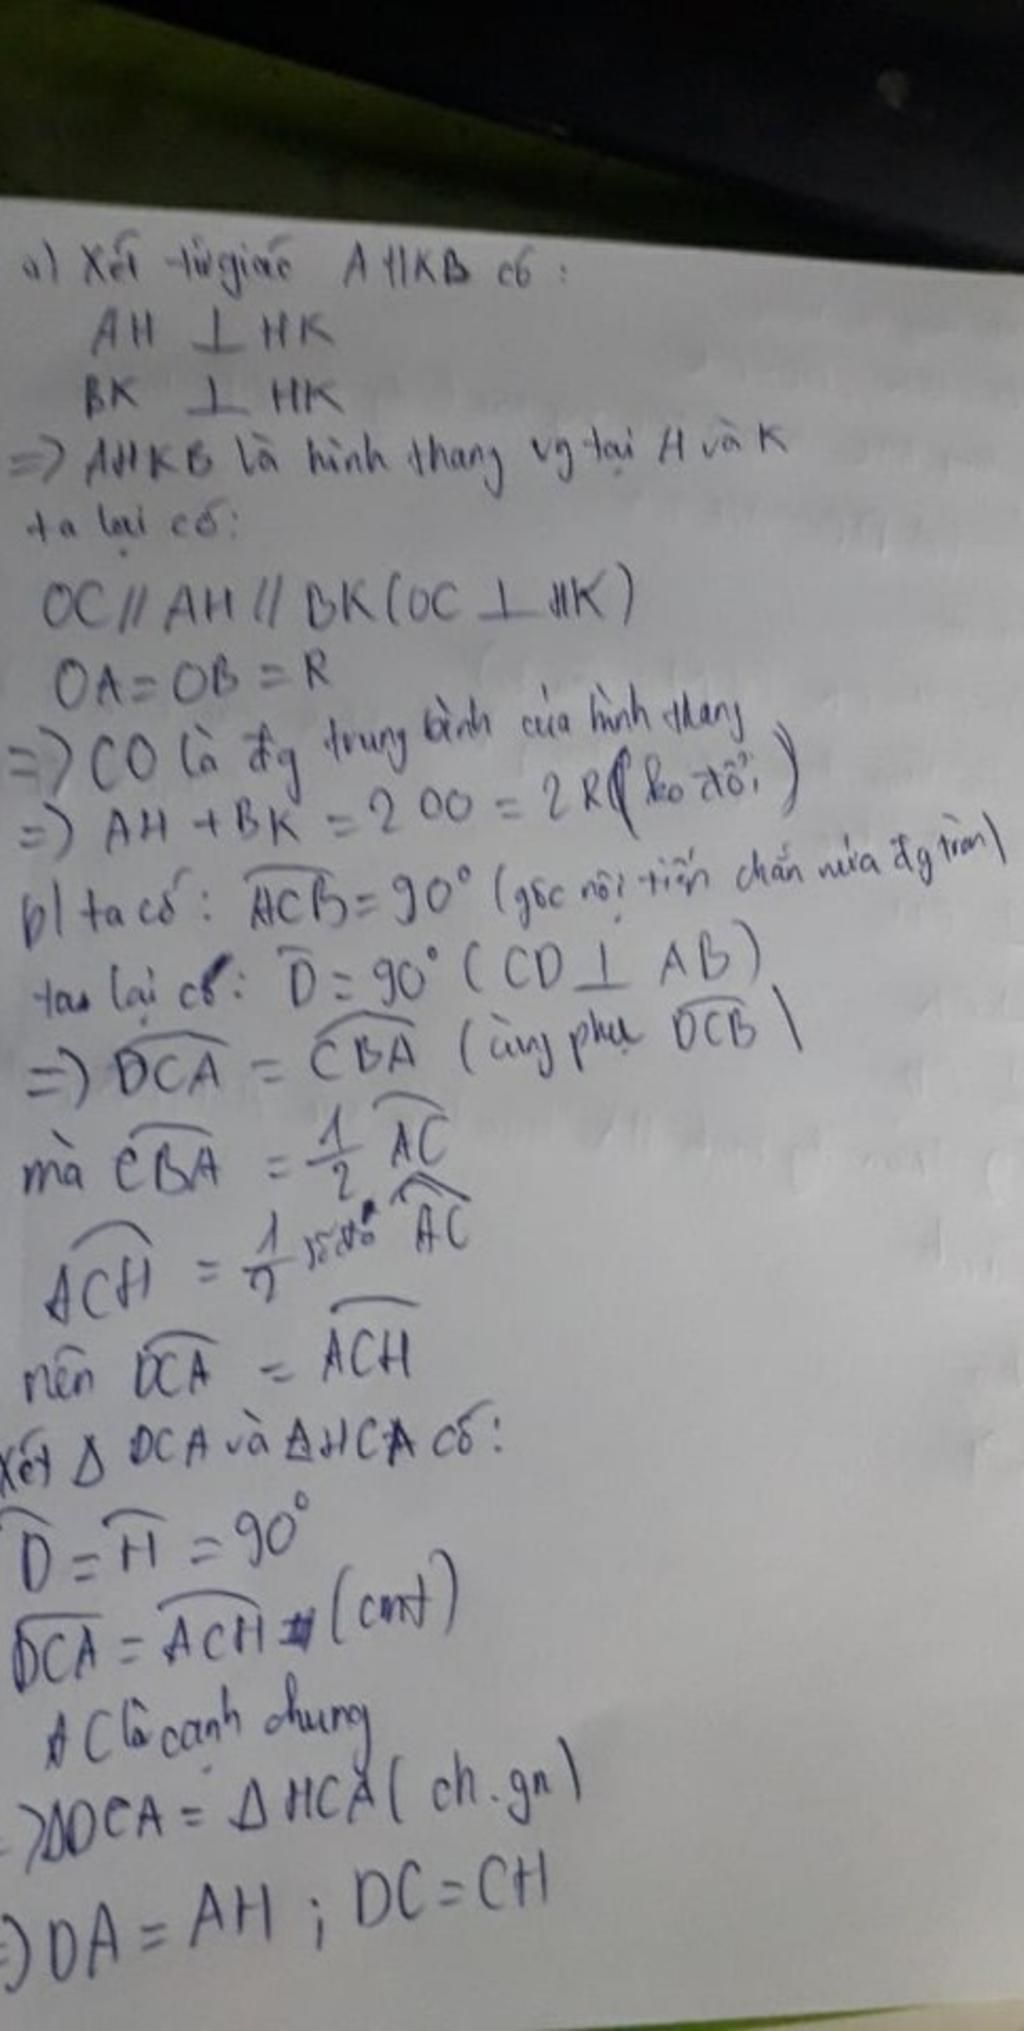 a) Xét tứ giác AHKB có:
AH ⊥ HK
BK ⊥ HK
=> AHKB là hình thang vg tại H và K
ta lại có:
OC // AH // BK (OC ⊥ HK)
OA = OB = R
=> CO là đg trung bình của hình thang
=> AH + BK = 2 OO = 2R (ko đổi)
b) ta có: \widehat{ACB} = 90° (góc nội tiếp chắn nửa đg tròn)
ta lại có: \widehat{D} = 90° (CD ⊥ AB)
=> \widehat{DCA} = \widehat{CBA} (cùng phụ \widehat{DCB})
mà \widehat{CBA} = 1/2 \widehat{AC}
\widehat{ACH} = 1/2 sđ \widehat{AC}
nên \widehat{DCA} = \widehat{ACH}
Xét Δ DCA và Δ HCA có:
\widehat{D} = \widehat{H} = 90°
\widehat{DCA} = \widehat{ACH} (cmt)
AC là cạnh chung
=> ΔDCA = Δ HCA (ch.gn)
=> DA = AH ; DC = CH